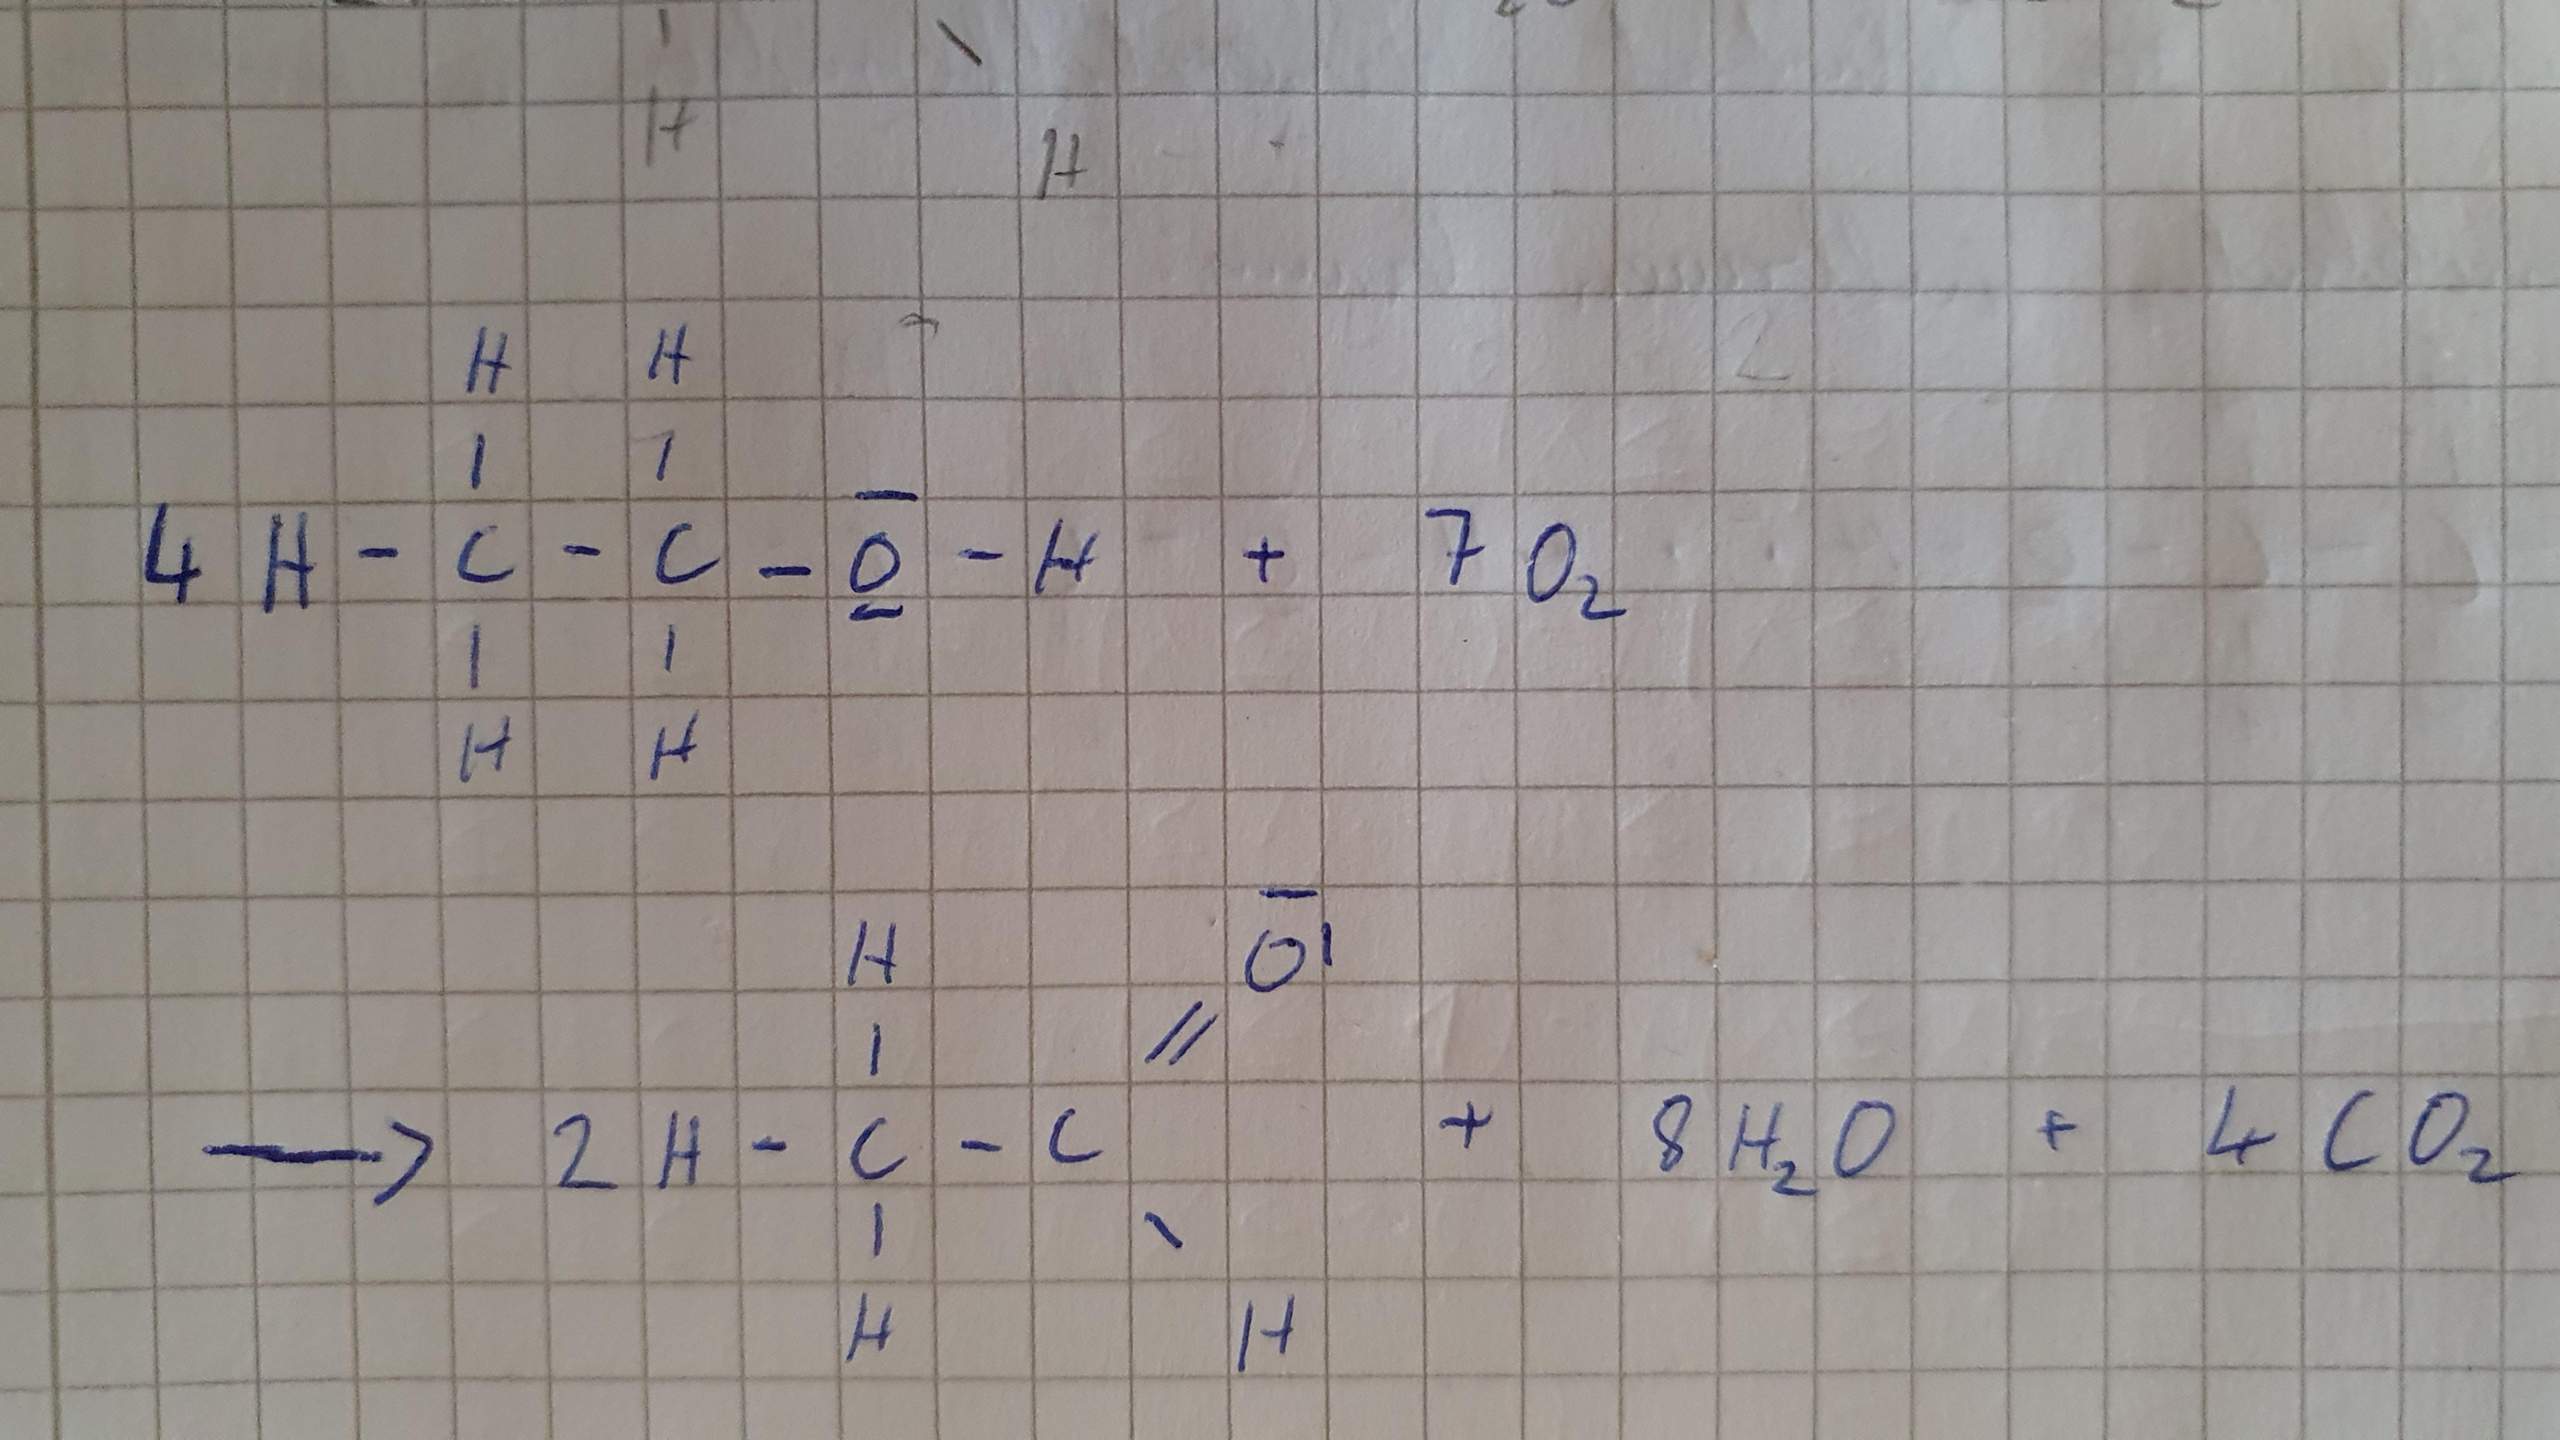 H
H
H H
| |
4 H - C - C - O̲̅ - H + 7 O₂
| |
H H
H O̅|
| //
→ 2 H - C - C + 8 H₂O + 4 CO₂
| \
H H